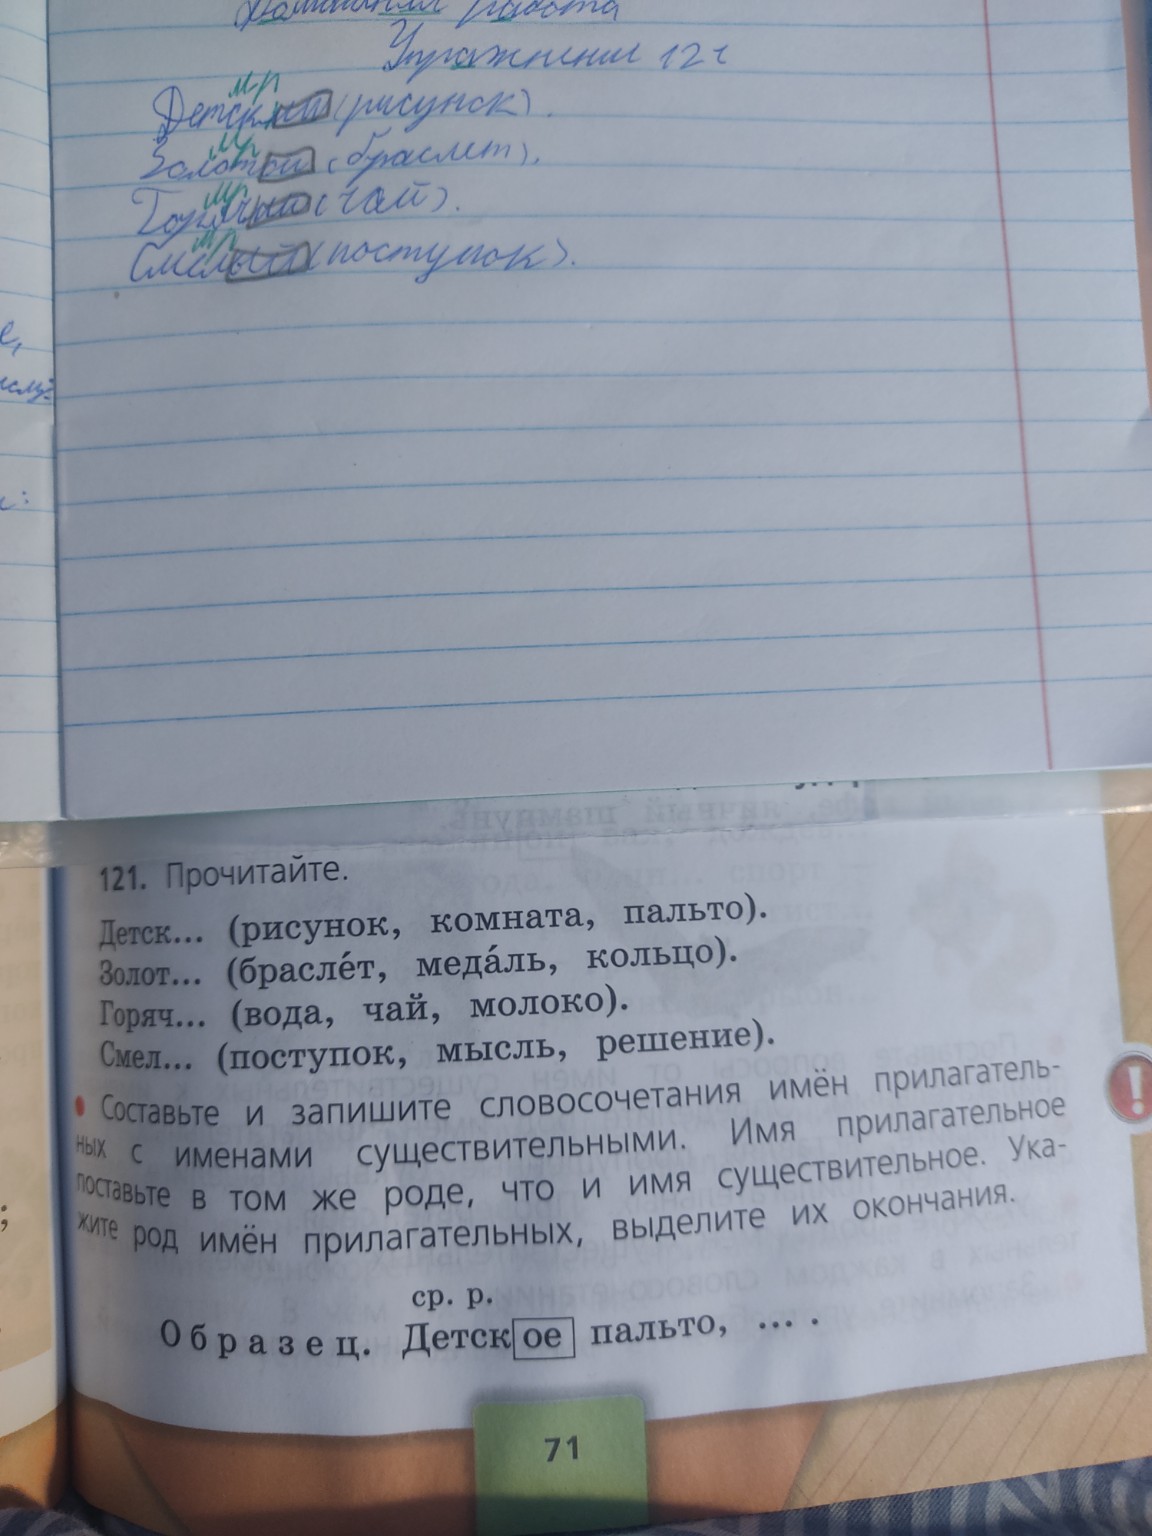 Домашняя работа
Упражнение 121
м р
Детский (рисунок).
м р
Золотой (браслет).
м р
Горячий (чай).
м р
Смелый (поступок).
е,
121. Прочитайте.
Детск... (рисунок, комната, пальто).
Золот... (брасле́т, меда́ль, кольцо).
Горяч... (вода, чай, молоко).
Смел... (поступок, мысль, решение).
• Составьте и запишите словосочетания имён прилагатель-
ных с именами существительными. Имя прилагательное
поставьте в том же роде, что и имя существительное. Ука-
жите род имён прилагательных, выделите их окончания.
!
ср. р.
Образец. Детское пальто, ... .
71